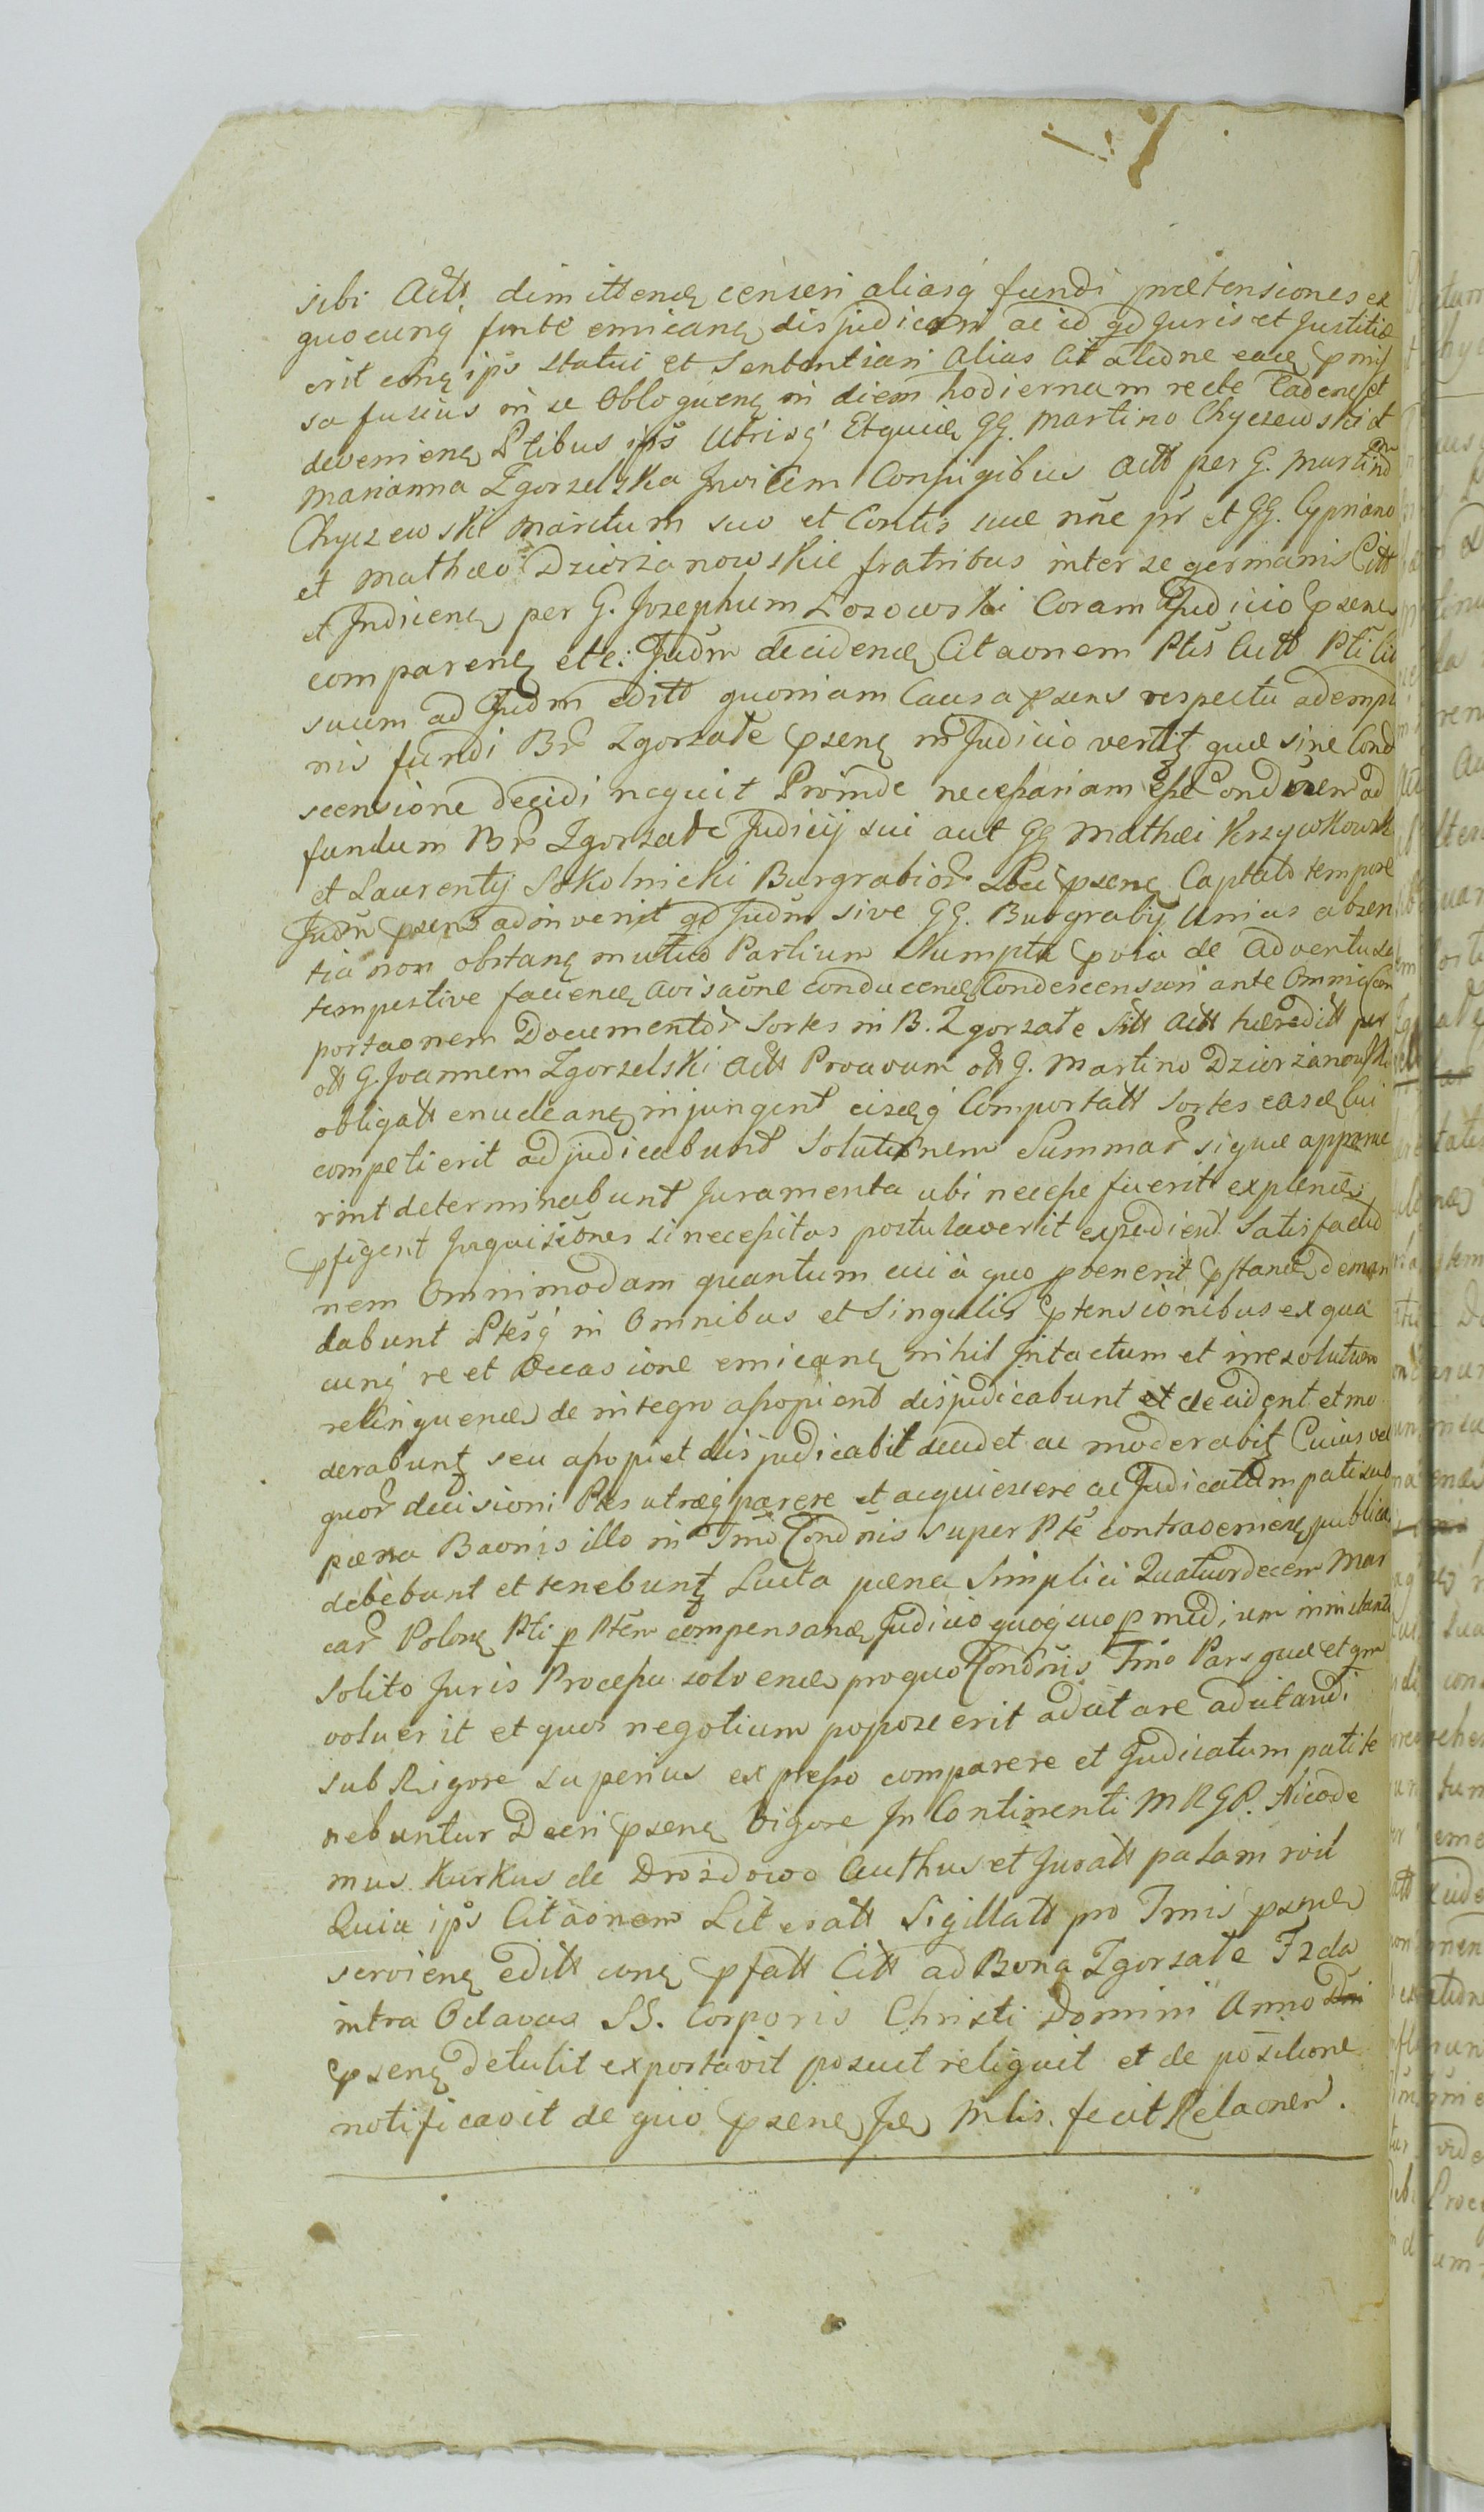 sibi Actt dimitten censeri aliasq fundi prætensiones ex
quocunq fonte emican disjudicari ac id qd Juris et Justitiæ
erit coñ ips statui et Sententiari alias Citatione eade pmis
sa fusius in se obloquen in diem hodiernam recte Caden et
devenien Ptibus ips Utrisq Etquide GG. Martino Chyczewski et
Marianna Zgorzelska Invicem Conjugibus Actt per G. Martinum
Chyczewski Maritum suo et Contis suæ nñe pñ et GG. Cypriano
et Mathæo Dziorzanowskie fratribus inter se germanis Citt
et Indicen per G. Josephum Lozowski Coram Judicio psen
comparen etc: Judm deciden Citaonem Ptis Actt Pti Citt
suum ad Judm editt quoniam Causa psens respectu adempt
nis fundi Br Zgorzate psen in Judicio vertit quæ sine Cond
scensione decidi nequit Proinde necessariam esse Condnem ad
fundum Br Zgorzate Judicij sui aut GG Mathæi Krzywkowski
et Laurentij Sokolnicki Burgrabior Loci psen Captus tempore
Judm psens adinvenit qd Judm sive GG. Burgrabij Unius absen
tia non obstan mutuo Partium Sumptu pvia de adventu suo
tempestive facien avisaone conducen Condescensuri ante Omnia Com
portaonem Documentor Sortes in B. Zgorzate Sitt Actt hæreditt per
ott G. Joannem Zgorzelski Actt Proavum ott G. Martino Dziorzanowski
obligatt enuclean injungent eisdeq Comportatt Sortes easde Cui
competierit adjudicabunt Solutionem Summar siquæ apparue
rint determinabunt Juramenta ubi necesse fuerit explen
pfigent Inquisitiones si necessitas postulaverit expedient Satisfactio
nem Omnimodam quantum cui à quo pvenerit pstan deman
dabunt Ptesq in Omnibus et Singulis ptensionibus ex qua
cunq re et Occasione emican nihil Intactum et irresolutum
relinquen de integro assopient disjudicabunt et decident et mo
derabunt seu assopiet disjudicabit decidet ac moderabit Cuius vel
quor decisioni Ptes utræq parere et acquiescere ac Judicatum pati sub
pæna Baonis illo in Tmo Condnis super Pte contravenien publican
debebunt et tenebunt Lucta pæna Simplici Quatuordecem Mar
car Polon Pti p Ptem compensan Judicio quoq uo p medium inin stanti
Solito Juris Processu solven pro quo Condnis Tmo Pars quæ et qm
voluerit et quos negotium poposcerit adcitare adcitandi
sub Rigore superius expresso comparere et Judicatum pati te
nebuntur Decri psen Vigore In Continenti MRGP. Nicode
mus Kurkus de Drozdowo Authus et Juratt palam rvit
Quia ips Citaonem Literatt Sigillatt pro Tmis psen
servien editt con pfatt Citt ad Bona Zgorzate Fzda
intra Octavas SS. Corporis Christi Domini Anno Dni
psen detulit exportavit posuit reliquit et de positione
notificavit de quo psen Je Mlis. fecit Relaonem.